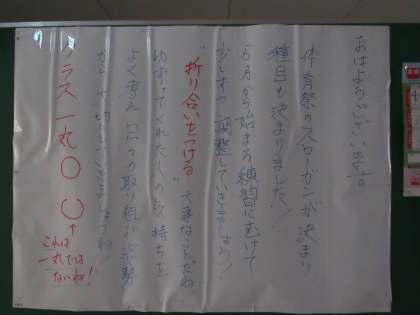 おはようございます
体育祭のスローガンが決まり
種目も決まりました!
5月から始まる練習にむけて
少しずつ調整していきましょう!
"折り合いをつける" 大事なことだね
ゆずってくれた人の気持ちを
よく考え 日々の取り組む姿勢
から大切にしていきましょうね!
クラス一丸〇 〇
↑
これは
一丸では
ないね!